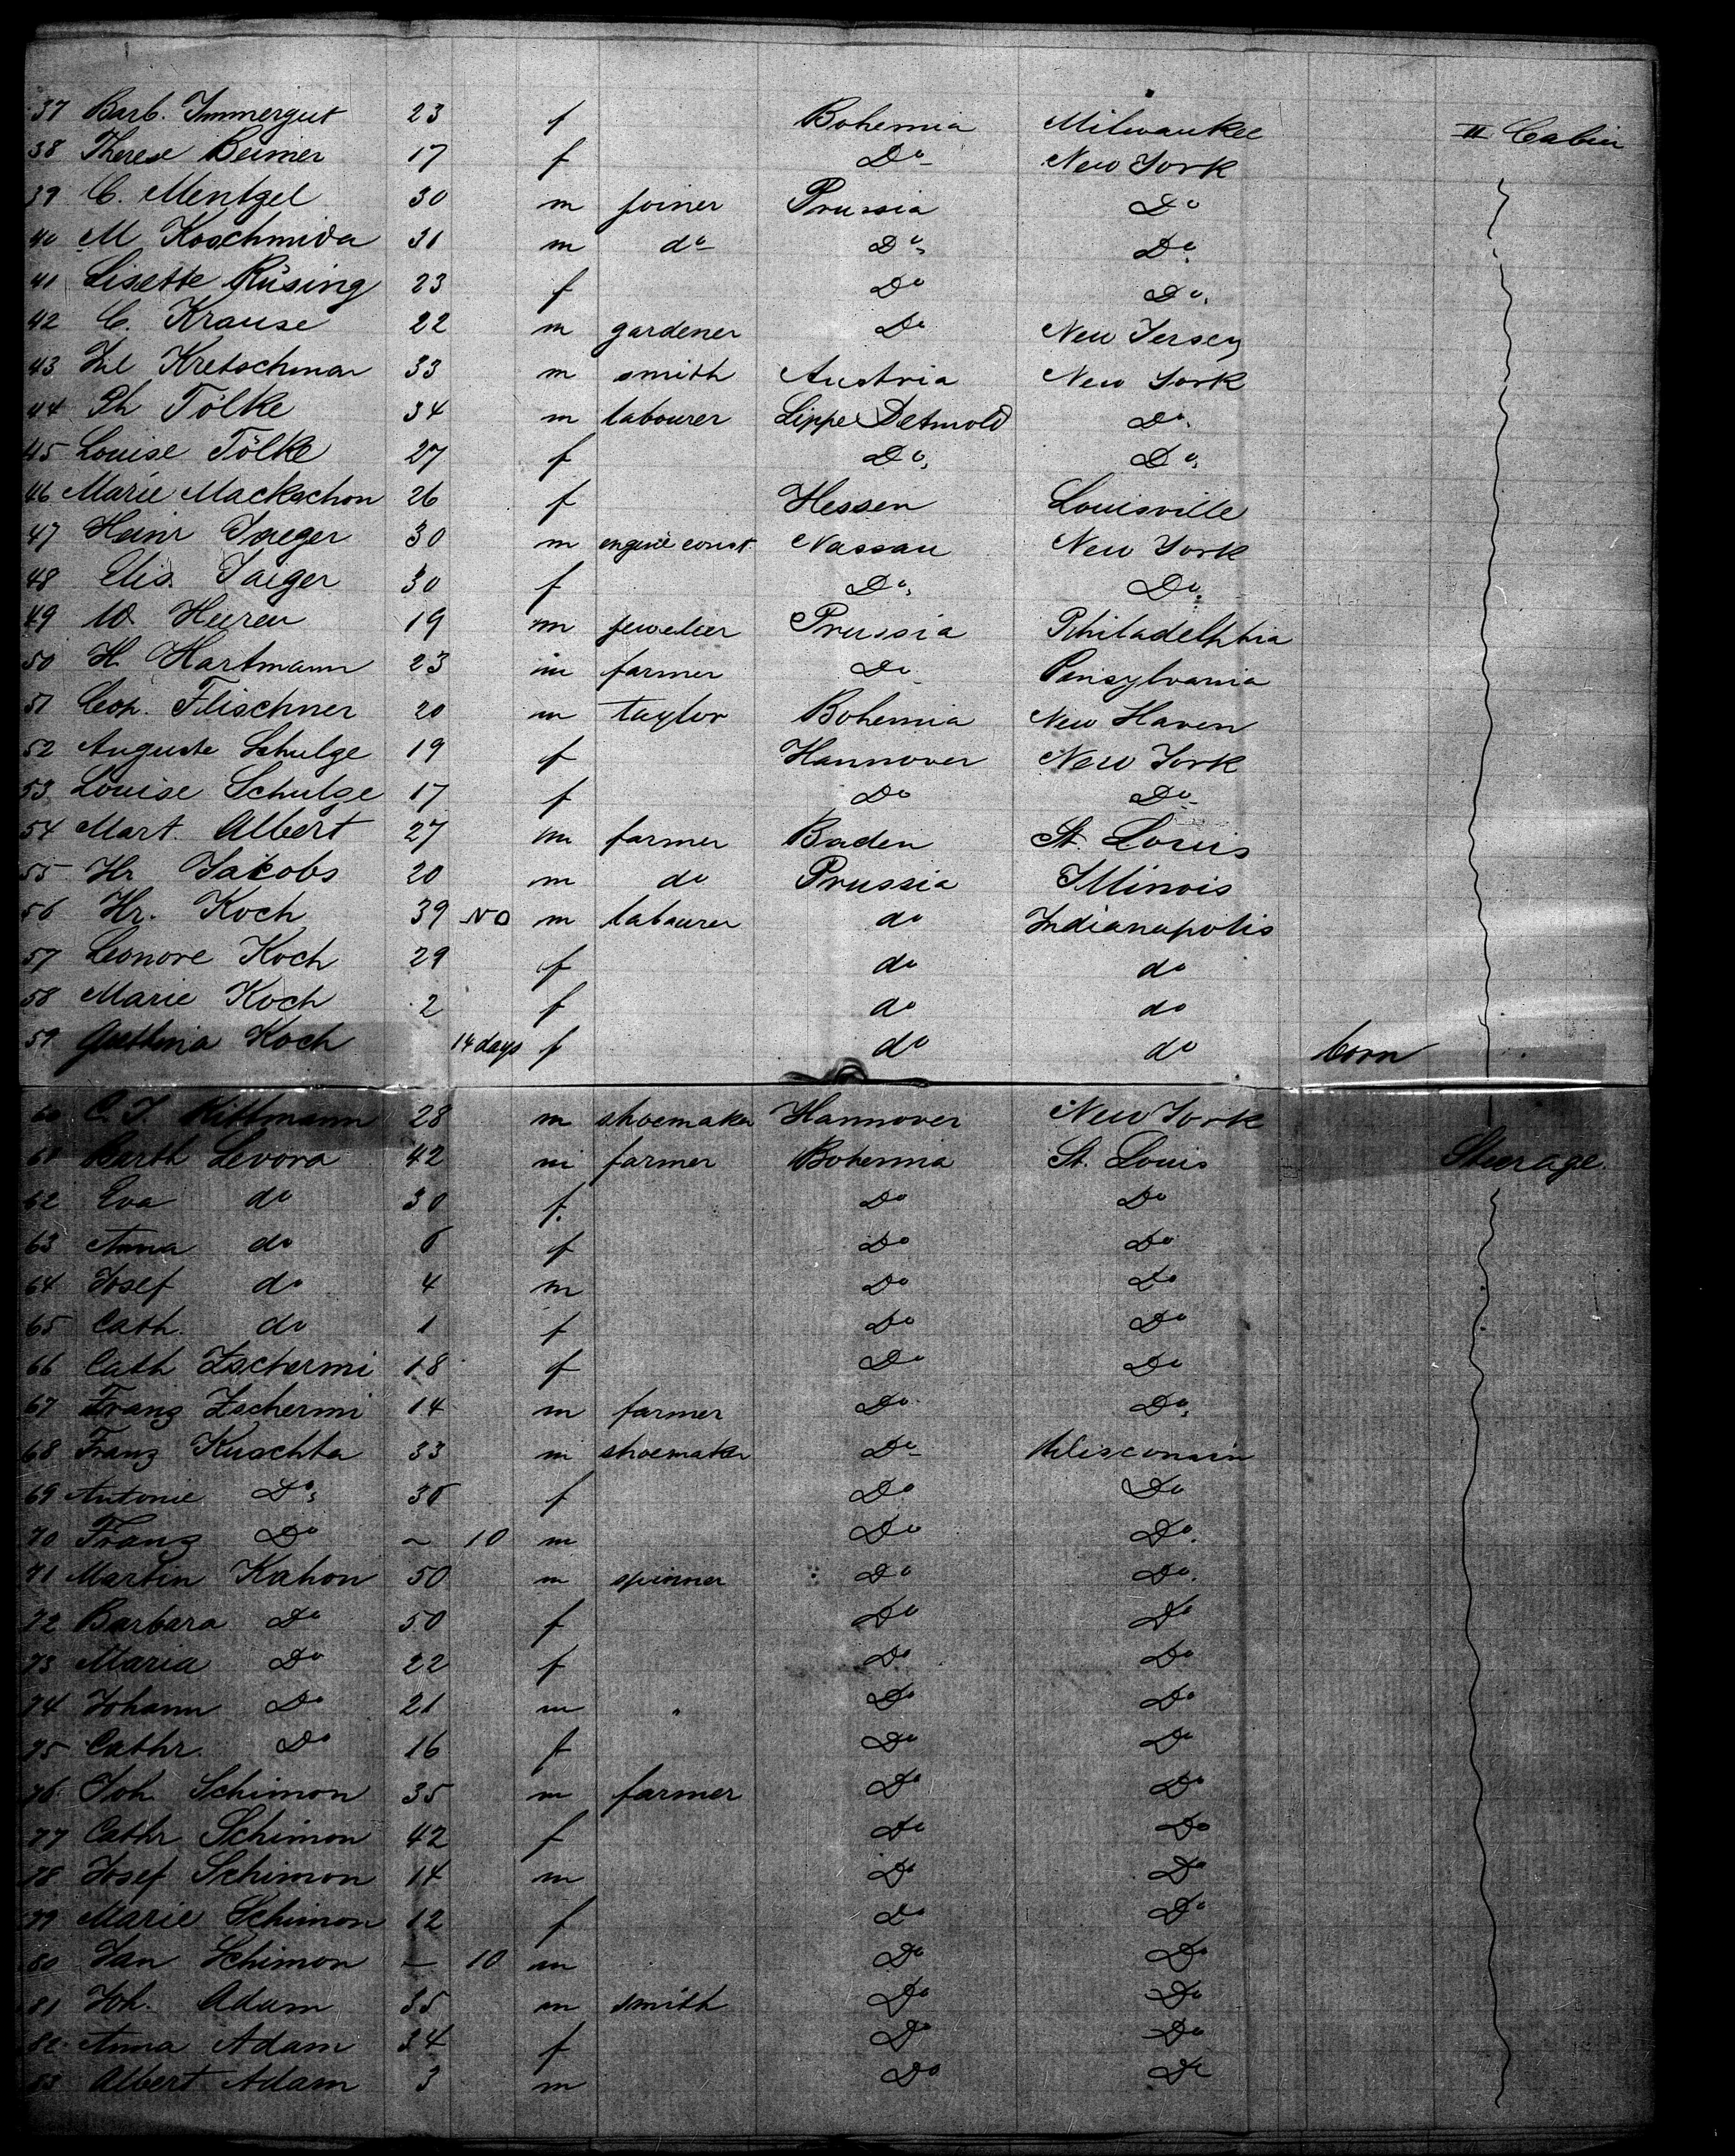 37 Barb. Immergut 23 f Bohemia Milwaukee II Cabin
38 Therese Beimer 17 f Do New York
39 C. Mentzel 30 m joiner Prussia Do
40 M Koschmida 31 m do Do Do
41 Lisette Rüsing 23 f Do Do
42 C. Krause 22 m gardener Do New Jersey
43 Kretschmar 33 m smith Austria New York
44 Ph Tölke 34 m labourer Lippe Detmold Do
45 Louise Tölke 27 f Do Do
46 Marie Mackschon 26 f Hessen Louisville
47 Heinr Jaeger 30 m engine const. Nassau New York
48 Elis. Jaiger 30 f Do Do
49 W. Heeren 19 m jeweleer Prussia Philadelphia
50 H. Hartmann 23 m farmer Do Pensylvania
51 Leop. Flischner 20 m taylor Bohemia New Haven
52 Auguste Schulze 19 f Hannover New York
53 Louise Schulze 17 f Do Do
54 Mart. Albert 27 m farmer Baden St. Louis
55 Hr Jacobs 20 m do Prussia Illinois
56 Hr. Koch 39 NO m labourer do Indianapolis
57 Leonore Koch 29 f do do
58 Marie Koch 2 f do do
59 Koch 14 days f do do born
60 C. J. Kittmann 28 m shoemaker Hannover New York
61 Levora 42 m farmer Bohemia St. Louis Steerage
62 Eva do 30 f Do Do
63 Anna do 6 f Do Do
64 Josef do 4 m Do Do
65 Cath. do 1 f Do Do
66 Cath Zschermi 18 f Do Do
67 Franz Zschermi 14 m farmer Do Do
68 Franz Kuschta 33 m shoemaker Do Wisconsin
69 Antonie Do 36 f Do Do
70 Franz Do – 10 m Do Do
71 Martin Kahon 50 m spinner Do Do
72 Barbara Do 50 f Do Do
73 Maria Do 22 f Do Do
74 Johann Do 21 m " Do Do
75 Cathr. Do 16 f Do Do
76 Joh. Schimon 35 m farmer Do Do
77 Cathr Schimon 42 f Do Do
78 Josef Schimon 14 m Do Do
79 Marie Schimon 12 f Do Do
80 Jan Schimon – 10 m Do Do
81 Joh. Adam 35 m smith Do Do
82 Anna Adam 34 f Do Do
83 Albert Adam 3 m Do Do